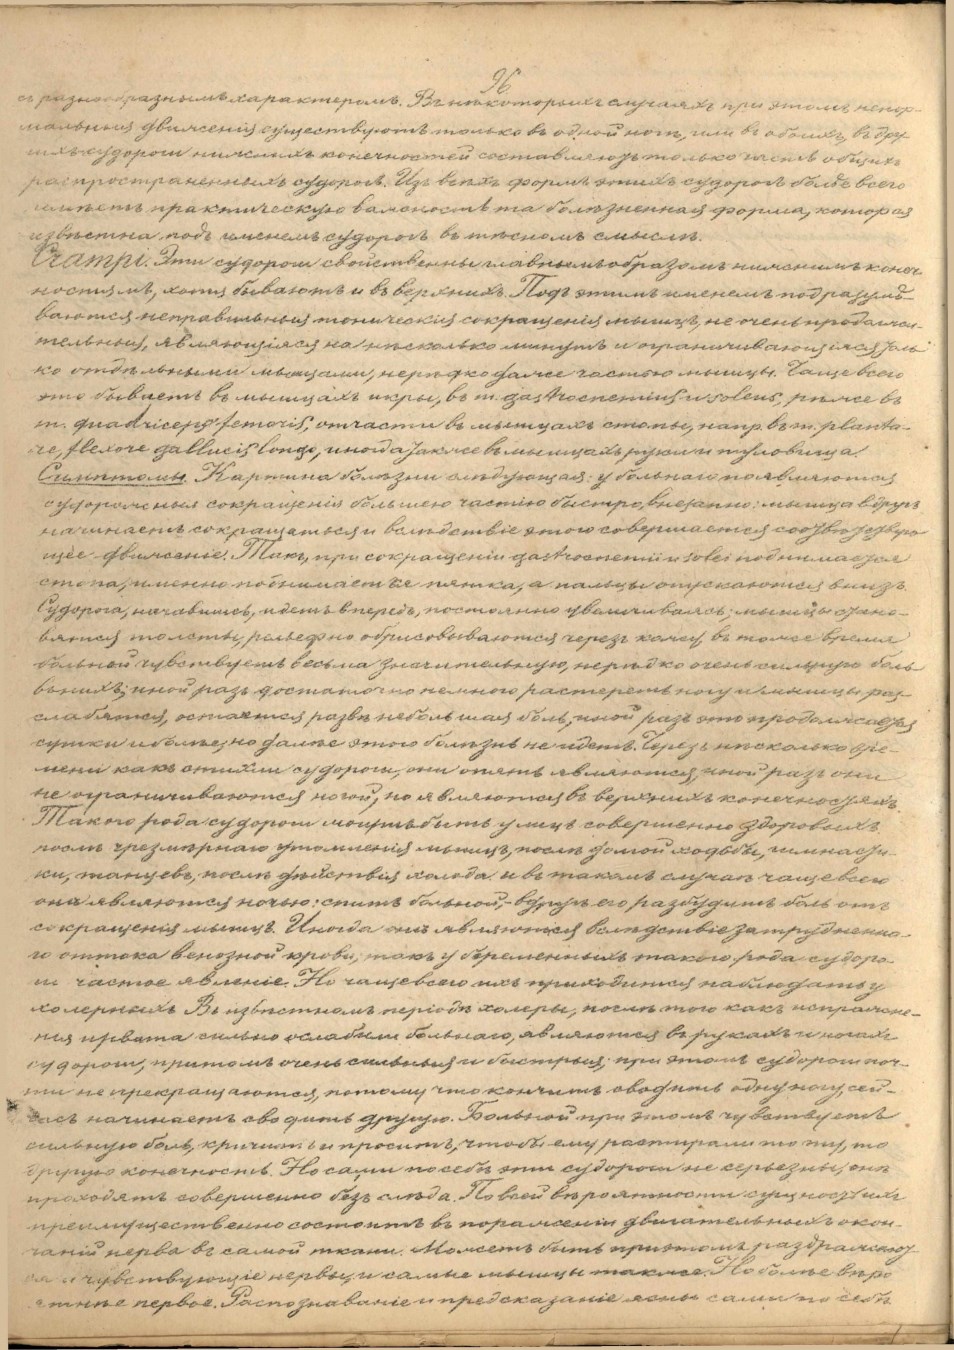 96
съ разнообразнымъ характеромъ. Въ нѣкоторыхъ случаяхъ при этомъ ненор-
мальныя движенія существуютъ только въ одной ногѣ, или въ обоихъ, въ дру
ихъ судороги нижнихъ конечностей составляютъ только часть общихъ
распространенныхъ судорогъ. Изъ всѣхъ формъ этихъ судорогъ болѣе всего
имѣетъ практическую важность та болѣзненная форма, которая
извѣстна подъ именемъ судорогъ въ тѣсномъ смыслѣ.
Crampi. Эти судороги свойственны главнымъ образомъ нижнимъ конеч-
ностямъ, хотя бываютъ и въ верхнихъ. Подъ этимъ именемъ подразумѣ-
ваются неправильныя тоническія сокращенія мышцъ, не очень продолжи-
тельныя, являющіяся на нѣсколько минутъ и ограничивающіяся толь
ко отдѣльными мышцами, нерѣдко даже частью мышцы. Чаще всего
это бываетъ въ мышцахъ икры, въ m. gastrocnemius и soleus, рѣже въ
m. quadriceps femoris, отчасти въ мышцахъ стопы, напр. въ m. planta-
re, flexore gallucis longo, иногда также въ мышцахъ руки и туловища.
Симптомы. Картина болѣзни слѣдующая: у больнаго появляются
судорожныя сокращенія большею частію быстро, внезапно: мышца вдругъ
начинаетъ сокращаться и вслѣдствіе этого совершается соотвѣтствую
щее движеніе. Такъ, при сокращеніи gastrocnemii и solei поднимается
стопа, именно поднимается пятка, а пальцы опускаются внизъ.
Судорога, начавшись, идетъ впередъ, постоянно увеличиваясь; мышцы стано-
вятся толсты, рельефно обрисовываются черезъ кожу, въ тоже время
больной чувствуетъ весьма значительную, нерѣдко очень сильную боль
въ нихъ; иной разъ достаточно немного растереть ногу и мышцы раз-
слабятся, остается развѣ небольшая боль, иной разъ это продолжается
сутки и болѣе, но далѣе этого болѣзнь не идетъ. Черезъ нѣсколько вре-
мени какъ стихли судороги, они опять являются, иной разъ они
не ограничиваются ногой, но являются въ верхнихъ конечностяхъ.
Такого рода судороги могутъ быть у лицъ совершенно здоровыхъ
послѣ чрезмѣрнаго утомленія мышцъ, послѣ долгой ходьбы, гимнасти-
ки, танцевъ, послѣ дѣйствія холода и въ такомъ случаѣ чаще всего
она являются ночью: спитъ больной, вдругъ его разбудитъ боль отъ
сокращенія мышцъ. Иногда онѣ являются вслѣдствіе затрудненна-
го оттока венозной крови; такъ у беременныхъ такого рода судоро-
ги частое явленіе. Но чаще всего ихъ приходится наблюдать у
холерныхъ. Въ извѣстномъ періодѣ холеры, послѣ того какъ испражне-
нія и рвота сильно ослабили больнаго, являются въ рукахъ и ногахъ
судороги, притомъ очень сильныя и быстрыя; при этомъ судороги поч-
ти не прекращаются, потому что кончитъ сводить одну ногу, сей-
часъ начинаетъ сводить другую. Больной при этомъ чувствуетъ
сильную боль, кричитъ и проситъ, чтобы ему растирали то ту, то
другую конечность. Но сами по себѣ эти судороги не серьезны, онѣ
проходятъ совершенно безъ слѣда. По всей вѣроятности сущность ихъ
преимущественно состоитъ въ пораженіи двигательныхъ окон-
чаній нерва въ самой ткани. Можетъ быть при этомъ раздражают
ся и чувствующіе нервы, и самые мышцы также. Но болѣе вѣро
ятнѣе первое. Распознаваніе и предсказаніе ясны сами по себѣ